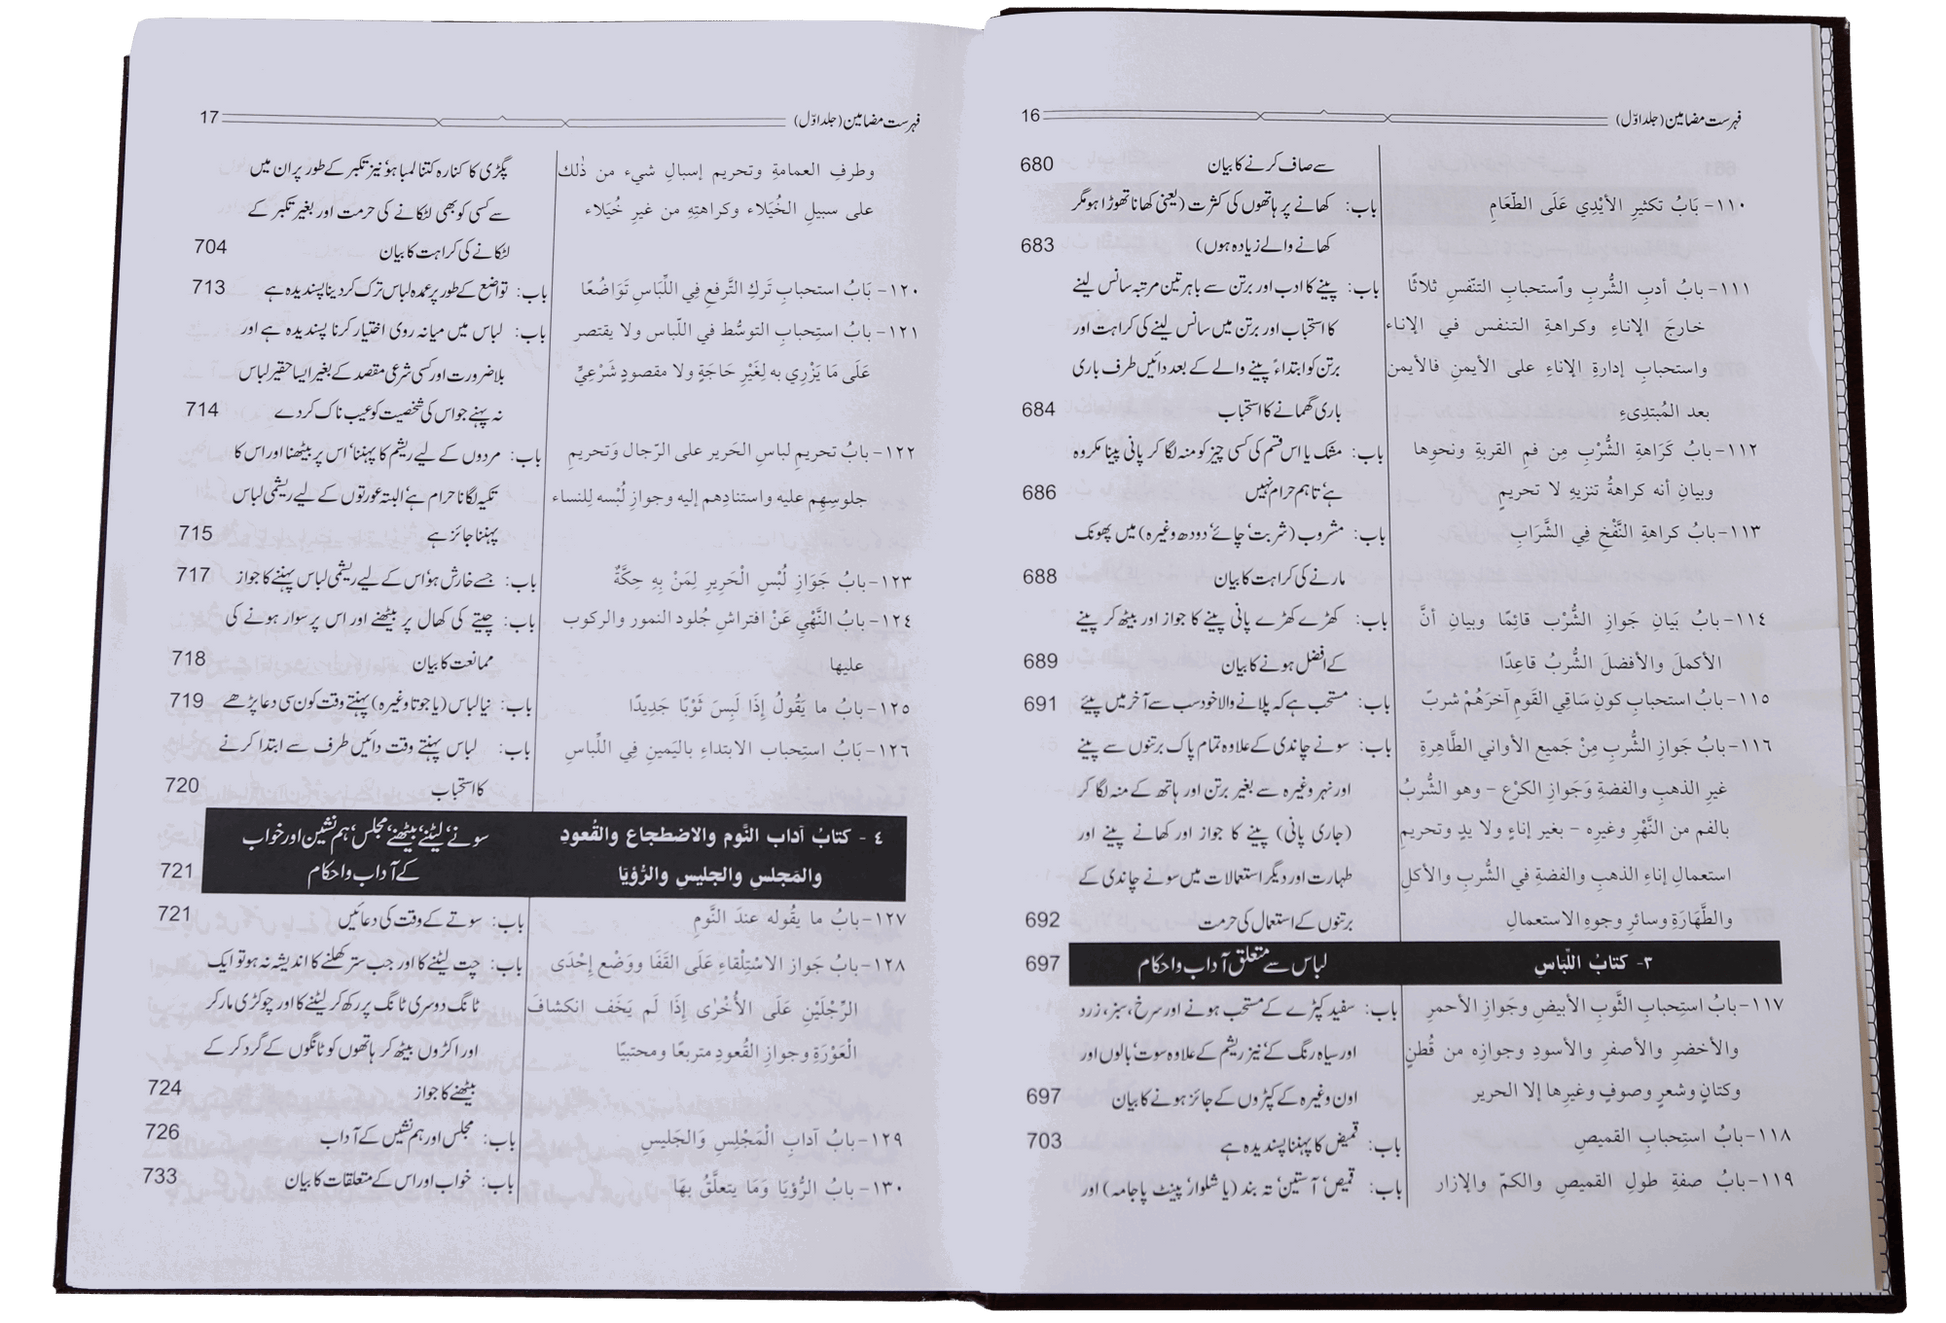 فہرست مضامین (جلد اوّل) 16
سے صاف کرنے کا بیان 680
١١٠- بَابُ تكثيرِ الأَيْدِي عَلَى الطَّعَامِ باب: کھانے پر ہاتھوں کی کثرت (یعنی کھانا تھوڑا ہو مگر
کھانے والے زیادہ ہوں) 683
١١١- بابُ أدبِ الشُّربِ وٱستحبابِ التنّفسِ ثلاثًا باب: پینے کا ادب اور برتن سے باہر تین مرتبہ سانس لینے
خارجَ الإناءِ وكراهةِ التنفس في الإناء کا استحباب اور برتن میں سانس لینے کی کراہت اور
واستحبابِ إدارةِ الإناءِ على الأيمنِ فالأيمن برتن کو ابتداءً پینے والے کے بعد دائیں طرف باری
بعد المُبتدِىءِ باری گھمانے کا استحباب 684
١١٢- بابُ كَرَاهةِ الشُّرْبِ مِن فمِ القربةِ ونحوِها باب: مشک یا اس قسم کی کسی چیز کو منہ لگا کر پانی پینا مکروہ
وبيانِ أنه كراهةُ تنزيهِ لا تحريمٍ ہے، تاہم حرام نہیں 686
١١٣- بابُ كراهةِ النَّفْخِ فِي الشَّرَابِ باب: مشروب (شربت، چائے، دودھ وغیرہ) میں پھونک
مارنے کی کراہت کا بیان 688
١١٤- بابُ بَيَانِ جَوازِ الشُّرْب قائِمًا وبيانِ أنَّ باب: کھڑے کھڑے پانی پینے کا جواز اور بیٹھ کر پینے
الأكملَ والأفضلَ الشُّربُ قاعِدًا کے افضل ہونے کا بیان 689
١١٥- بابُ استحبابِ كونِ سَاقِي القَومِ آخرَهُمْ شربً باب: مستحب ہے کہ پلانے والا خود سب سے آخر میں پیئے 691
١١٦- بابُ جَوازِ الشُّربِ مِنْ جَميعِ الأواني الطَّاهِرةِ باب: سونے چاندی کے علاوہ تمام پاک برتنوں سے پینے
غيرِ الذهبِ والفضةِ وَجَوازِ الكرْع - وهو الشُّربُ اور نہر وغیرہ سے بغیر برتن اور ہاتھ کے منہ لگا کر
بالفم من النَّهْرِ وغيرِه - بغير إناءٍ ولا يدٍ وتحريمِ (جاری پانی) پینے کا جواز اور کھانے پینے اور
استعمالِ إناءِ الذهبِ والفضةِ في الشُّربِ والأكلِ طہارت اور دیگر استعمالات میں سونے چاندی کے
والطَّهَارَةِ وسائرِ وجوهِ الاستعمالِ برتنوں کے استعمال کی حرمت 692
٣- كتابُ اللّبَاسِ لباس سے متعلق آداب و احکام 697
١١٧- بابُ استِحبابِ الثَّوبِ الأبيضِ وجَوازِ الأحمرِ باب: سفید کپڑے کے مستحب ہونے اور سرخ، سبز، زرد
والأخضرِ والأصفرِ والأسودِ وجوازِه من قُطنٍ اور سیاہ رنگ کے، نیز ریشم کے علاوہ سوت، بالوں اور
وكتانٍ وشعرٍ وصوفٍ وغيرِها إلا الحرير اون وغیرہ کے کپڑوں کے جائز ہونے کا بیان 697
١١٨- بابُ استِحبابِ القميصِ باب: قمیض کا پہننا پسندیدہ ہے 703
١١٩- بابُ صفةِ طولِ القميصِ والكمّ والإزار باب: قمیص، آستین، تہ بند (یا شلوار، پینٹ پاجامہ) اور
فہرست مضامین (جلد اوّل) 17
وطرفِ العمامةِ وتحريم إسبالِ شيء من ذٰلك پگڑی کا کنارہ کتنا لمبا ہو، نیز تکبر کے طور پر ان میں
على سبيلِ الخُيَلاء وكراهتِهِ من غيرِ خُيَلاء سے کسی کو بھی لٹکانے کی حرمت اور بغیر تکبر کے
لٹکانے کی کراہت کا بیان 704
١٢٠- بَابُ استحبابِ تَركِ التَّرفعِ فِي اللِّبَاسِ تَوَاضُعًا باب: تواضع کے طور پر عمدہ لباس ترک کر دینا پسندیدہ ہے 713
١٢١- بابُ استِحبابِ التوسُّط في اللّباس ولا يقتصر باب: لباس میں میانہ روی اختیار کرنا پسندیدہ ہے اور
عَلَى مَا يَزْرِي به لِغَيْرِ حَاجَةٍ ولا مقصودٍ شَرْعِيٍّ بلا ضرورت اور کسی شرعی مقصد کے بغیر ایسا حقیر لباس
نہ پہنے جو اس کی شخصیت کو عیب ناک کر دے 714
١٢٢- بابُ تحريمِ لباسِ الحَرير على الرّجال وَتَحريمِ باب: مردوں کے لیے ریشم کا پہننا، اس پر بیٹھنا اور اس کا
جلوسِهِم عليه واستنادِهم إليه وجوازِ لُبْسه لِلنساء تکیہ لگانا حرام ہے، البتہ عورتوں کے لیے ریشمی لباس
پہننا جائز ہے 715
١٢٣- بابُ جَوَازِ لُبْسِ الْحَرِيرِ لِمَنْ بِهِ حِكَّةٌ باب: جسے خارش ہو، اس کے لیے ریشمی لباس پہننے کا جواز 717
١٢٤- بابُ النَّهْيِ عَنْ افتراشِ جُلود النمور والركوب باب: چیتے کی کھال پر بیٹھنے اور اس پر سوار ہونے کی
عليها ممانعت کا بیان 718
١٢٥- بابُ ما يَقُولُ إذَا لَبِسَ ثَوْبًا جَدِيدًا باب: نیا لباس (یا جوتا وغیرہ) پہنتے وقت کون سی دعا پڑھے 719
١٢٦- بَابُ استِحباب الابتداءِ باليَمينِ فِي اللِّباسِ باب: لباس پہنتے وقت دائیں طرف سے ابتدا کرنے
کا استحباب 720
٤ - كتابُ آداب النَّوم والاضطجاع والقُعودِ سونے، لیٹنے، بیٹھنے، مجلس، ہم نشین اور خواب
والمَجلسِ والجليسِ والرُّؤيَا کے آداب و احکام 721
١٢٧- بابُ ما يقُوله عندَ النَّومِ باب: سوتے کے وقت کی دعائیں 721
١٢٨- بابُ جَواز الاسْتِلْقاءِ عَلَى القَفَا ووَضْع إحْدَى باب: چت لیٹنے کا اور جب ستر کھلنے کا اندیشہ نہ ہو تو ایک
الرِّجْلَيْنِ عَلَى الأُخْرٰى إذَا لَم يَخَف انكشافَ ٹانگ دوسری ٹانگ پر رکھ کر لیٹنے کا اور چوکڑی مار کر
الْعَوْرَةِ وجوازِ القُعودِ متربعًا ومحتبيًا اور اکڑوں بیٹھ کر ہاتھوں کو ٹانگوں کے گرد کر کے
بیٹھنے کا جواز 724
١٢٩- بابُ آدابِ الْمَجْلِسِ وَالجَليسِ باب: مجلس اور ہم نشین کے آداب 726
١٣٠- بابُ الرُّؤيَا وَمَا يتعلَّقُ بهَا باب: خواب اور اس کے متعلقات کا بیان 733